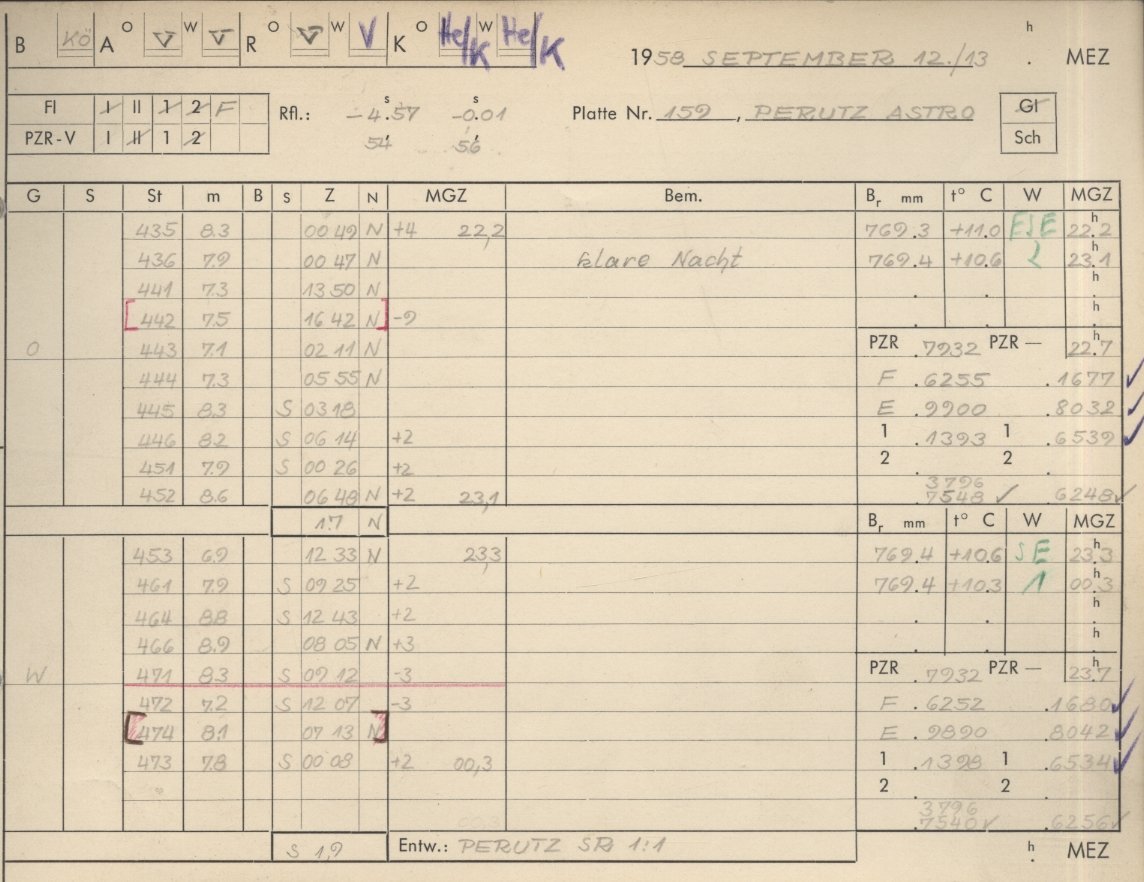 B Kö A O V W V R O V W V K O He/K W He/K h
1958 SEPTEMBER 12./13 . MEZ
Fl I II 1 2 F Rfl.: -4.57 s -0.01 s Platte Nr. 159, PERUTZ ASTRO Gl
PZR-V I II 1 2 54 56 Sch
G S St m B S Z N MGZ Bem. Br mm t° C W MGZ
435 8.3 00 49 N +4 22,2 769.3 +11.0 ESE 22.2 h
436 7.9 00 47 N klare Nacht 769.4 +10.6 2 23.1 h
441 7.3 13 50 N . . h
[442 7.5 16 42 N] -9 . . h
O 443 7.1 02 11 N PZR .7932 PZR — 22.7 h
444 7.3 05 55 N F .6255 .1677 ✓
445 8.3 S 03 18 E .9900 .8032 ✓
446 8.2 S 06 14 +2 1 .1393 1 .6539 ✓
451 7.9 S 00 26 +2 2 2 .
452 8.6 06 48 N +2 23,1 3796
.7548 ✓ .6248 ✓
1.7 N Br mm t° C W MGZ
453 6.9 12 33 N 23,3 769.4 +10.6 SE 23.3 h
461 7.9 S 09 25 +2 769.4 +10.3 1 00.3 h
464 8.8 S 12 43 +2 . . h
466 8.9 08 05 N +3 . . h
W 471 8.3 S 09 12 -3 PZR .7932 PZR — 23.7 h
472 7.2 S 12 07 -3 F .6252 .1680 ✓
[474 8.1 07 13 N] E .9890 .8042 ✓
473 7.8 S 00 08 +2 00,3 1 .1398 1 .6534 ✓
2 2 .
00,3 3796
.7540 ✓ .6256 ✓
S 1,9 Entw.: PERUTZ SR 1:1 h . MEZ